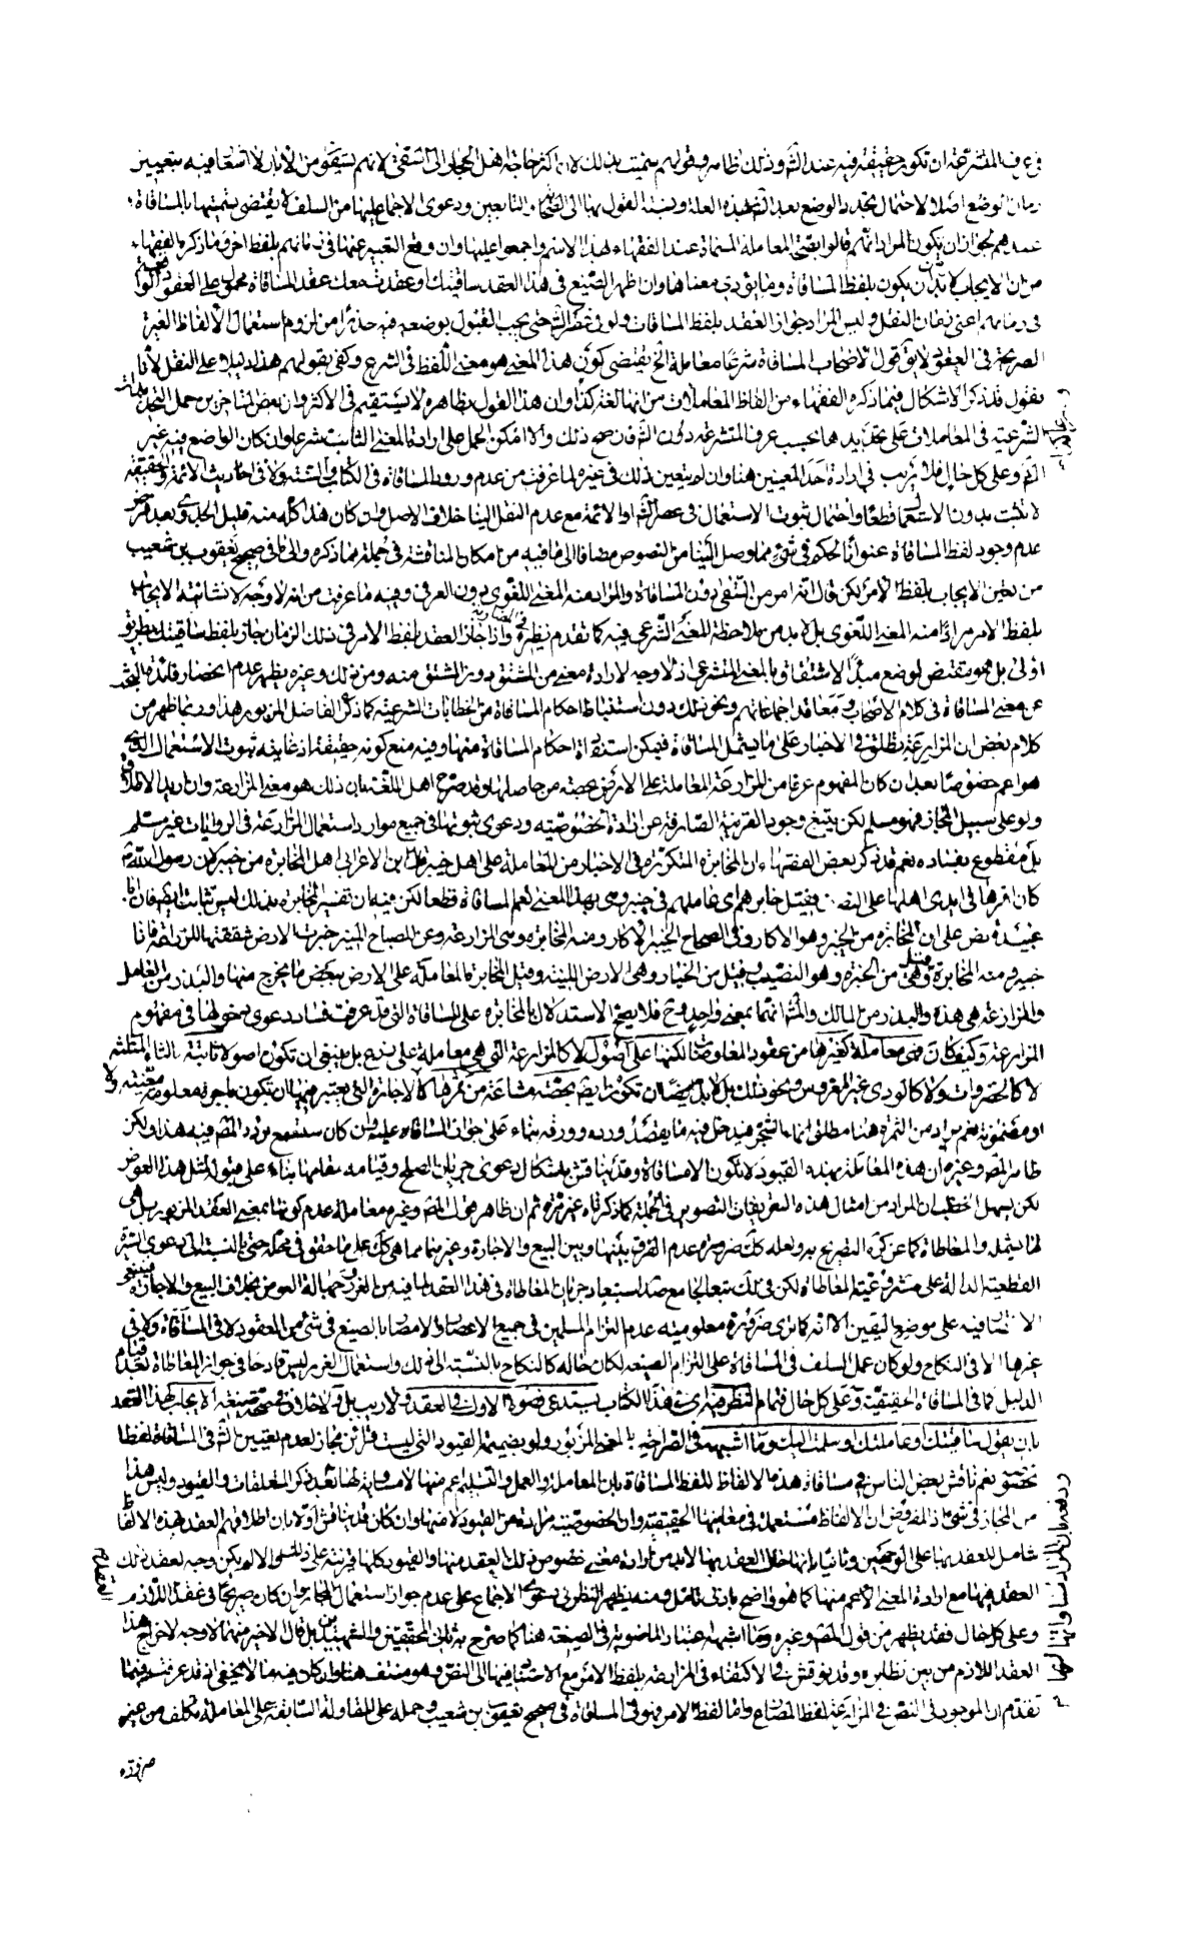 في عرف المتشرعة ان تكون حقيقة فيه عند الشرع وذلك ظاهر وقولهم سميت بذلك لان اكثر حاجة اهل الحجاز الى السقي لانهم يستقون من الآبار لا اشعار فيه بتعيين
زمان الوضع اصلا لاحتمال تجدد الوضع بعد الشرع لهذه العلة ونسبة القول بها الى الصحابة والتابعين ودعوى الاجماع عليها من السلف لا يقتضي تسميتها بالمساقاة
عندهم لجواز ان يكون المراد انهم قالوا بصحة المعاملة المسماة عند الفقهاء بهذا الاسم واجمعوا عليها وان وقع التعبير عنها في زمانهم بلفظ اخر وما ذكره الفقهاء
من ان الايجاب لا بد ان يكون بلفظ المساقاة وما يؤدي معناها وان اظهر الصيغ في هذا العقد ساقيتك او عقدت معك عقد المساقاة محمول على العقود الواقعة
في زمانهم اعني زمان النقل وليس المراد جواز العقد بلفظ المساقات ولو في عصر الشرع حتى يجب القبول بوضعه فيه حذرا من لزوم استعمال الالفاظ الغير
الصريحة في العقود لا يقال قول الاصحاب المساقاة شرعا معاملة الخ يقتضي كون هذا المعنى هو معنى اللفظ في الشرع وكفى بقولهم هذا دليلا على النقل لانا
نقول قد ذكر الاشكال فيما ذكره الفقهاء من الفاظ المعاملات من انها لغة كذا وان هذا القول بظاهره لا يستقيم في الاكثر وان بعض المتاخرين حمل التحديدات
الشرعية في المعاملات على تحديدها بحسب عرف المتشرعة دون الشرع فان صح ذلك والا امكن الحمل على ارادة المعنى الثابت شرعا وان كان الواضع فيه غير
الشرع وعلى كل حال فلا ريب في ارادة احد المعنيين هنا وان لم يتعين ذلك في غيره لما عرفت من عدم ورود المساقاة في الكتاب والسنة ولا في احاديث الائمة والحقيقة
لا تثبت بدون الاستعمال قطعا واحتمال ثبوت الاستعمال في عصر الشرع او الائمة مع عدم النقل الينا خلاف الاصل وان كان هذا كله منه قليل الجدوى بعد فرض
عدم وجود لفظ المساقاة عنوانا لحكم في شيء مما وصل الينا من النصوص مضافا الى ما فيه من امكان المناقشة في جملة مما ذكره والى ما في صحيح يعقوب بن شعيب
من تعين الايجاب بلفظ الامر لكن قال انه امر من السقي دون المساقاة والمراد منه المعنى اللغوي دون العرفي وفيه ما عرفت من انه لا وجه لانشائه الايجاب
بلفظ الامر مرادا منه المعنى اللغوي بل لا بد من ملاحظة المعنى الشرعي فيه كما تقدم نظيره في المضاربة واذا جاز العقد بلفظ الامر في ذلك الزمان جاز بلفظ ساقيتك بطريق
اولى بل هو مقتض لوضع مبدأ الاشتقاق بالمعنى المتشرعي اذ لا وجه لارادة معنى من المشتق دون المشتق منه ومن ذلك وغيره يظهر عدم انحصار فائدة البحث
عن معنى المساقاة في كلام الاصحاب ومعاقد اجماعاتهم ونحو ذلك دون استنباط احكام المساقاة من الخطابات الشرعية كما ذكر الفاضل المزبور هذا وربما ظهر من
كلام بعض ان المزارعة تطلق في الاخبار على ما يشمل المساقاة فيمكن استفادة احكام المساقاة منها وفيه منع كونه حقيقة اذ غايته ثبوت الاستعمال الذي
هو اعم خصوصا بعد ان كان المفهوم عرفا من المزارعة المعاملة على الارض بحصة من حاصلها وقد صرح اهل اللغة بان ذلك هو معنى المزارعة وان اريد الاطلاق
ولو على سبيل المجاز فهو مسلم لكن يتبع وجود القرينة الصارفة عن ارادة الخصوصية ودعوى ثبوتها في جميع موارد استعمال المزارعة في الروايات غير مسلم
بل مقطوع بفساده نعم قد ذكر بعض الفقهاء ان المخابرة المتكررة في الاخبار من المعاملة على اهل خيبر قال ابن الاعرابي اصل المخابرة من خيبر لان رسول الله
كان اقرها في ايدي اهلها على النصف فقيل خابرهم اي عاملهم في خيبر وهي بهذا المعنى تعم المساقاة قطعا لكن فيه ان تفسير المخابرة بذلك ليس بثابت ايضا فان ابا
عبيدة نص على ان المخابرة من الخبير وهو الاكار وفي الصحاح الخبير الاكار ومنه المخابرة وهي المزارعة وعن المصباح المنير خبرت الارض شققتها للزراعة فانا
خبير ومنه المخابرة وقيل هي من الخبرة وهو النصيب وقيل من الخبار وهي الارض اللينة وقيل المخابرة المعاملة على الارض ببعض ما يخرج منها والبذر من العامل
والمزارعة هي هذه والبذر من المالك والاشهر انهما بمعنى واحد وح فلا يصح الاستدلال بالمخابرة على المساقاة التي قد عرفت فساد دعوى دخولها في مفهوم
المزارعة وكيف كان فهي معاملة كغيرها من عقود المعاوضات لكنها على اصول لا كالمزارعة التي هي معاملة على زرع بل ينبغي ان تكون اصولا ثابتة بالثاء المثلثة
لا كالخضروات ولا كالودي غير المغروس ونحو ذلك بل لا بد ايضا ان تكون ايضا بحصة مشاعة من ثمرها لا كالاجارة التي يعتبر فيها ان تكون باجرة معلومة معينة ولا
او مضمونة نعم يراد من الثمرة هنا مطلق نماء الشجر فيدخل فيه ما يقصد ورده وورقه بناء على جواز المساقاة عليه وان كان ستسمع تردد المصنف فيه هذا ولكن
ظاهر المصنف وغيره ان هذه المعاملة بهذه القيود لا تكون الا مساقاة وقد يناقش باشكال دعوى جريان الصلح وقيامه مقامها بناء على قبوله لمثل هذا العوض
لكن يسهل الخطب ان المراد من امثال هذه التعريفات التصوير في الجملة كما ذكرناه غير مرة ثم ان ظاهر قول المصنف وغيره معاملة عدم كونها بمعنى العقد المزبور بل هي
لما يشمله والمعاطاة كما عن كره التصريح به ولعله كذلك ضرورة عدم الفرق بينها وبين البيع والاجارة وغيرهما مما هي كذلك على ما حقق في محله حتى بالنسبة الى دعوى السيرة
القطعية الدالة على مشروعية المعاطاة لكن في لك تبعا لجامع صد استبعاد جريان المعاطاة في هذا العقد لما فيه من الغرر وجهالة العوض بخلاف البيع والاجارة فينبغي
الاقتصار فيه على موضع اليقين الا انه كما ترى ضرورة معلومية عدم التزام المسلمين في جميع الاعصار والامصار بالصيغ في شيء من العقود لا في المساقاة ولا في
غيرها الا في النكاح ولو كان عمل السلف في المساقاة على التزام الصيغة لكان حاله كالنكاح بالنسبة الى ذلك واستعمال الغرر ليس قادحا في جواز المعاطاة بعد قيام
الدليل كما في المساقاة الحقيقية وعلى كل حال فتمام النظر فيها في هذا الكتاب يستدعي فصولا الاول في العقد ولا ريب بل ولا خلاف في صحة صيغة الايجاب لهذا العقد
بان يقول ساقيتك او عاملتك او سلمت اليك وما اشبهه في الصراحة بالمعنى المزبور ولو بضميمة القيود التي ليست قرائن مجاز لعدم تعيين الشرع في المساقاة لفظا
مخصوصا نعم ناقش بعض الناس في مساقاة هذه الالفاظ للفظ المساقاة بان المعاملة والعمل والتسليم اعم منها الا مساوية لها بعد ذكر المتعلقات والقيود وليس هذا
من المجاز في شيء اذ المفروض ان الالفاظ مستعملة في معانيها الحقيقية وان الخصوصية مرادة من القيود لا منها وان كان قد يناقش اولا بان اطلاقهم العقد بهذه الالفاظ
شامل للعقد بها على الوجهين وثانيا بانها حال العقد بها لا بد من ارادة معنى خصوص ذلك العقد منها والقيود كلها قرينة على ذلك والا لم يكن وجه لعقد ذلك
العقد بها مع ارادة المعنى الاعم منها كما هو واضح بادنى تامل ومنه يظهر النظر في دعوى الاجماع على عدم جواز استعمال المجاز وان كان صريحا في عقد اللازم
وعلى كل حال فقد يظهر من قول المصنف وغيره وما اشبهه اعتبار الماضوية في الصيغة هنا كما صرح به ثاني المحققين والشهيدين بل قال الاخير منهما لا وجه لاخراج هذا
العقد اللازم من بين نظائره وقد نوقش في الاكتفاء في المزارعة بلفظ الامر مع الاستناد فيها الى النص وهو منتف هنا وان كان فيه ما لا يخفى انه قد عرفت فيما
تقدم ان الموجود في النص في المزارعة لفظ المضارع واما لفظ الامر فهو في المساقاة في صحيح يعقوب بن شعيب وحمله على المقاولة السابقة على المعاملة تكلف من غير
ضرورة